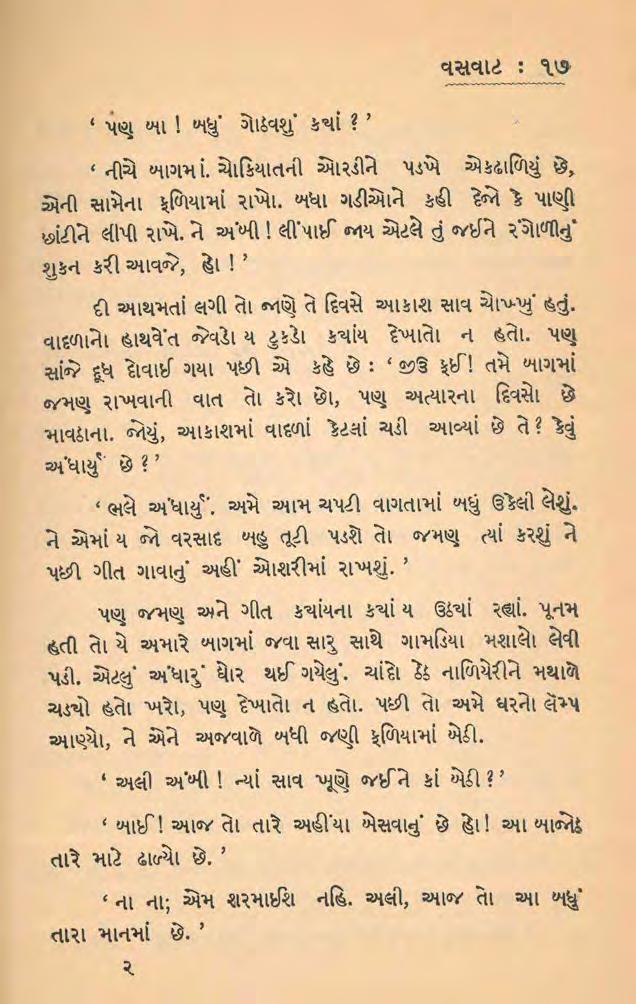 વસવાટ : ૧૭
‘ પણ બા ! બધું ગોઠવશું ક્યાં ? ’
‘ નીચે બાગમાં. ચોકિયાતની ઓરડીને પડખે એકઢાળિયું છે,
એની સામેના ફળિયામાં રાખો. બધા ગડીઓને કહી દેજો કે પાણી
છાંટીને લીપી રાખે. ને અંબી ! લીંપાઈ જાય એટલે તું જઈને રંગોળીનું
શુકન કરી આવજે, હો ! ’
દી આથમતાં લગી તો જાણે તે દિવસે આકાશ સાવ ચોખ્ખું હતું.
વાદળાનો હાથવેંત જેવડો ય ટુકડો ક્યાંય દેખાતો ન હતો. પણ
સાંજે દૂધ દોવાઈ ગયા પછી એ કહે છે : ‘ જીઉ ફઈ! તમે બાગમાં
જમણ રાખવાની વાત તો કરો છો, પણ અત્યારના દિવસો છે
માવઠાના. જોયું, આકાશમાં વાદળાં કેટલાં ચડી આવ્યાં છે તે? કેવું
અંધાર્યું છે ? ’
‘ ભલે અંધાર્યું. અમે આમ ચપટી વાગતામાં બધું ઉકેલી લેશું.
ને એમાં ય જો વરસાદ બહુ તૂટી પડશે તો જમણ ત્યાં કરશું ને
પછી ગીત ગાવાનું અહીં ઓશરીમાં રાખશું. ’
પણ જમણ અને ગીત ક્યાંયના ક્યાં ય ઉડ્યાં રહ્યાં. પૂનમ
હતી તો યે અમારે બાગમાં જવા સારુ સાથે ગામડિયા મશાલો લેવી
પડી. એટલું અંધારું ઘોર થઈ ગયેલું. ચાંદો ઠેઠ નાળિયેરીને મથાળે
ચડ્યો હતો ખરો, પણ દેખાતો ન હતો. પછી તો અમે ઘરનો લૅમ્પ
આણ્યો, ને એને અજવાળે બધી જણી ફળિયામાં બેઠી.
‘ અલી અંબી ! ન્યાં સાવ ખૂણે જઈને કાં બેઠી ? ’
‘ બાઈ ! આજ તો તારે અહીંયા બેસવાનું છે હો ! આ બાજોઠ
તારે માટે ઢાળ્યો છે. ’
‘ ના ના; એમ શરમાઈશ નહિ. અલી, આજ તો આ બધું
તારા માનમાં છે. ’
૨